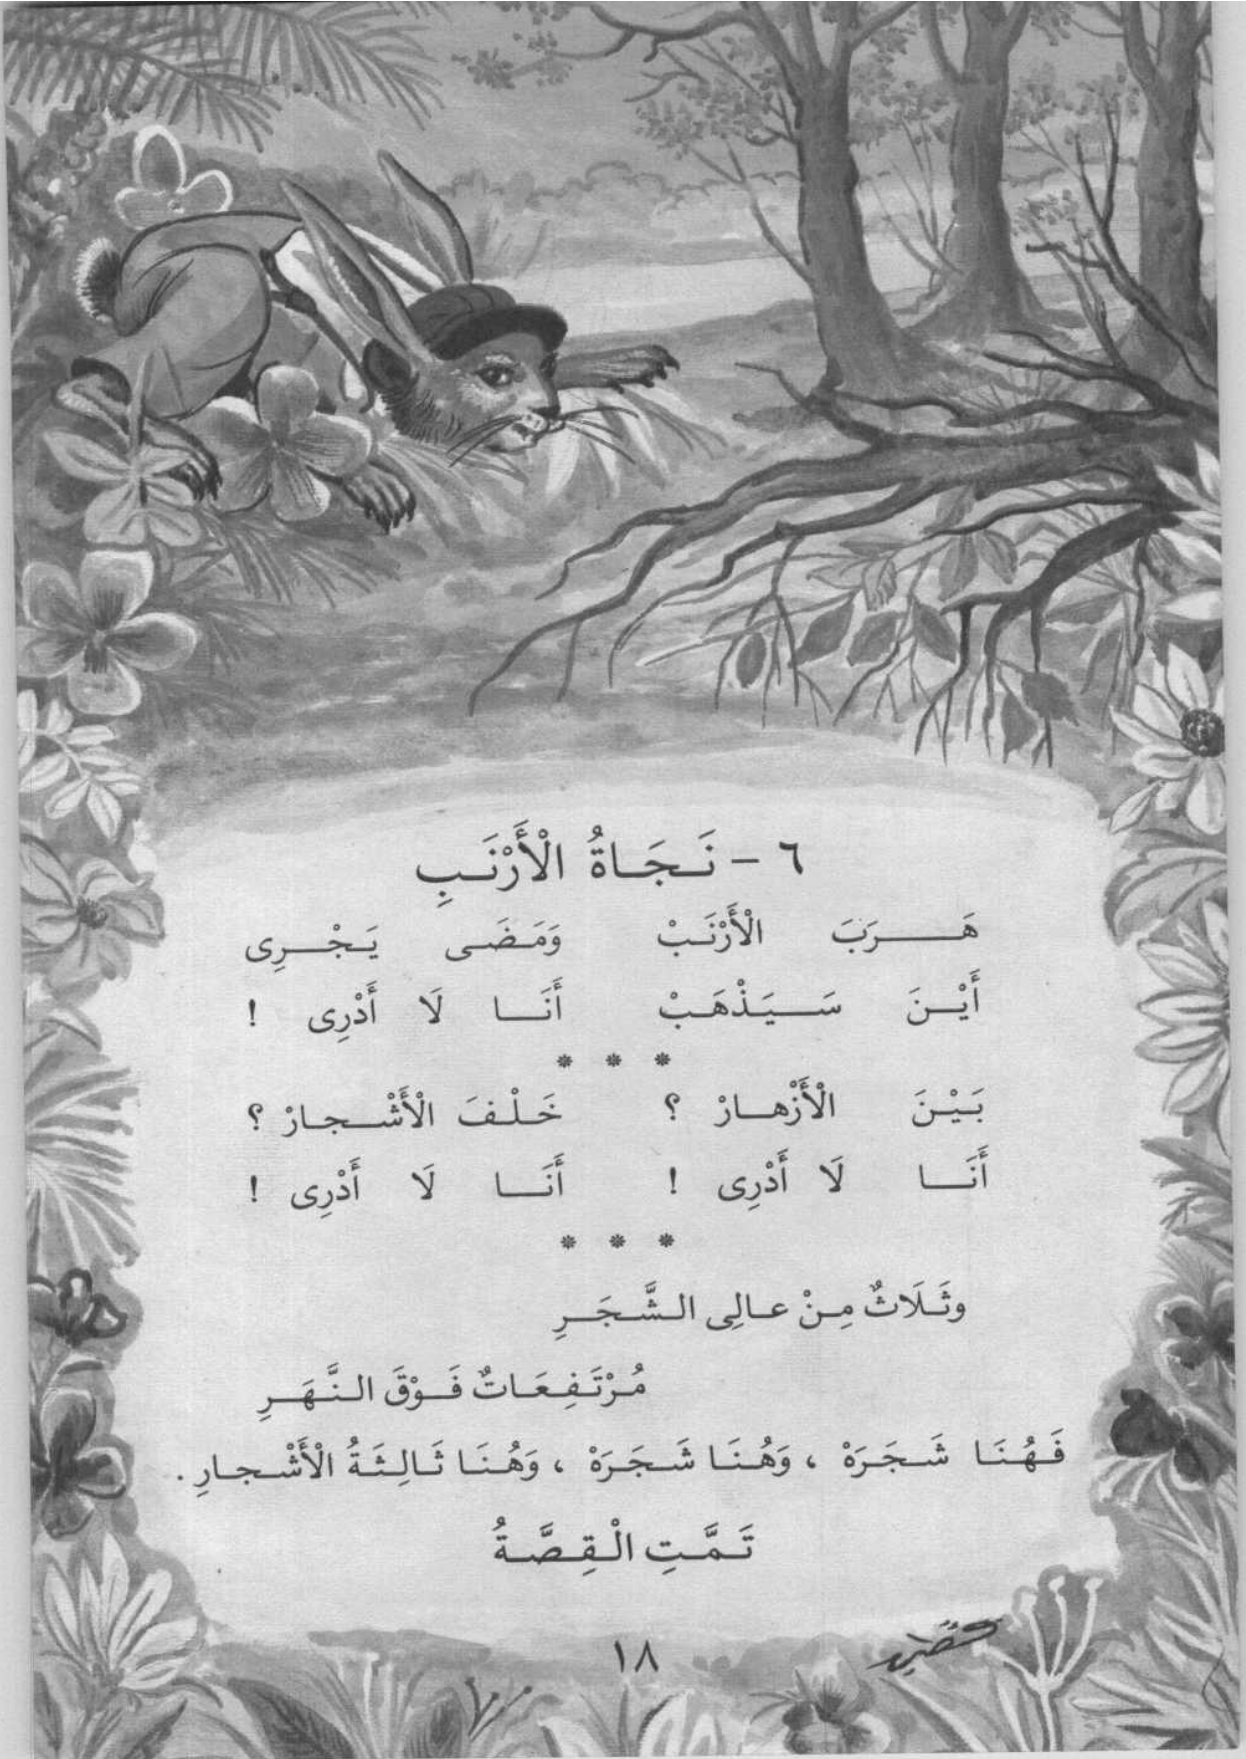 ٦ - نَجَاةُ الْأَرْنَبِ
هَرَبَ الْأَرْنَبْ وَمَضَى يَجْرِى
أَيْنَ سَيَذْهَبْ أَنَا لَا أَدْرِى !
* * *
بَيْنَ الْأَزْهارْ ؟ خَلْفَ الْأَشْجارْ ؟
أَنَا لَا أَدْرِى ! أَنَا لَا أَدْرِى !
* * *
وثَلَاثٌ مِنْ عالِى الشَّجَرِ
مُرْتَفِعَاتٌ فَوْقَ النَّهَرِ
فَهُنَا شَجَرَهْ ، وَهُنَا شَجَرَهْ ، وَهُنَا ثَالِثَةُ الْأَشْجارِ .
تَمَّتِ الْقِصَّةُ
١٨